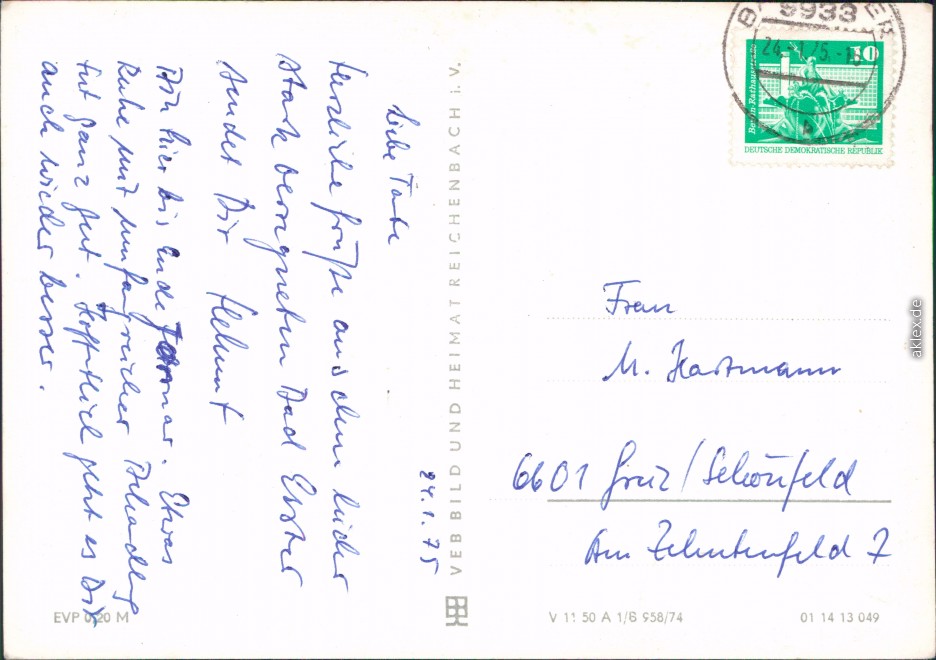 24.1.75
Liebe Tante
herzliche Grüße aus dem leider
stark verregneten Bad Elster
sendet Dir Helmut
Bin hier bis Ende Januar. Etwas
Ruhe mit umfangreicher Behandlung
tut ganz gut. Hoffentlich geht es Dir
auch wieder besser.
VEB BILD UND HEIMAT REICHENBACH i. V.
9933
24.-1.75.-1
Berlin Rathausstraße
10
DEUTSCHE DEMOKRATISCHE REPUBLIK
Frau
M. Hartmann
6601 Greiz/Schönfeld
Am Zehntenfeld 7
EVP 0,20 M
V 11 50 A 1/B 958/74
01 14 13 049
aklex.de